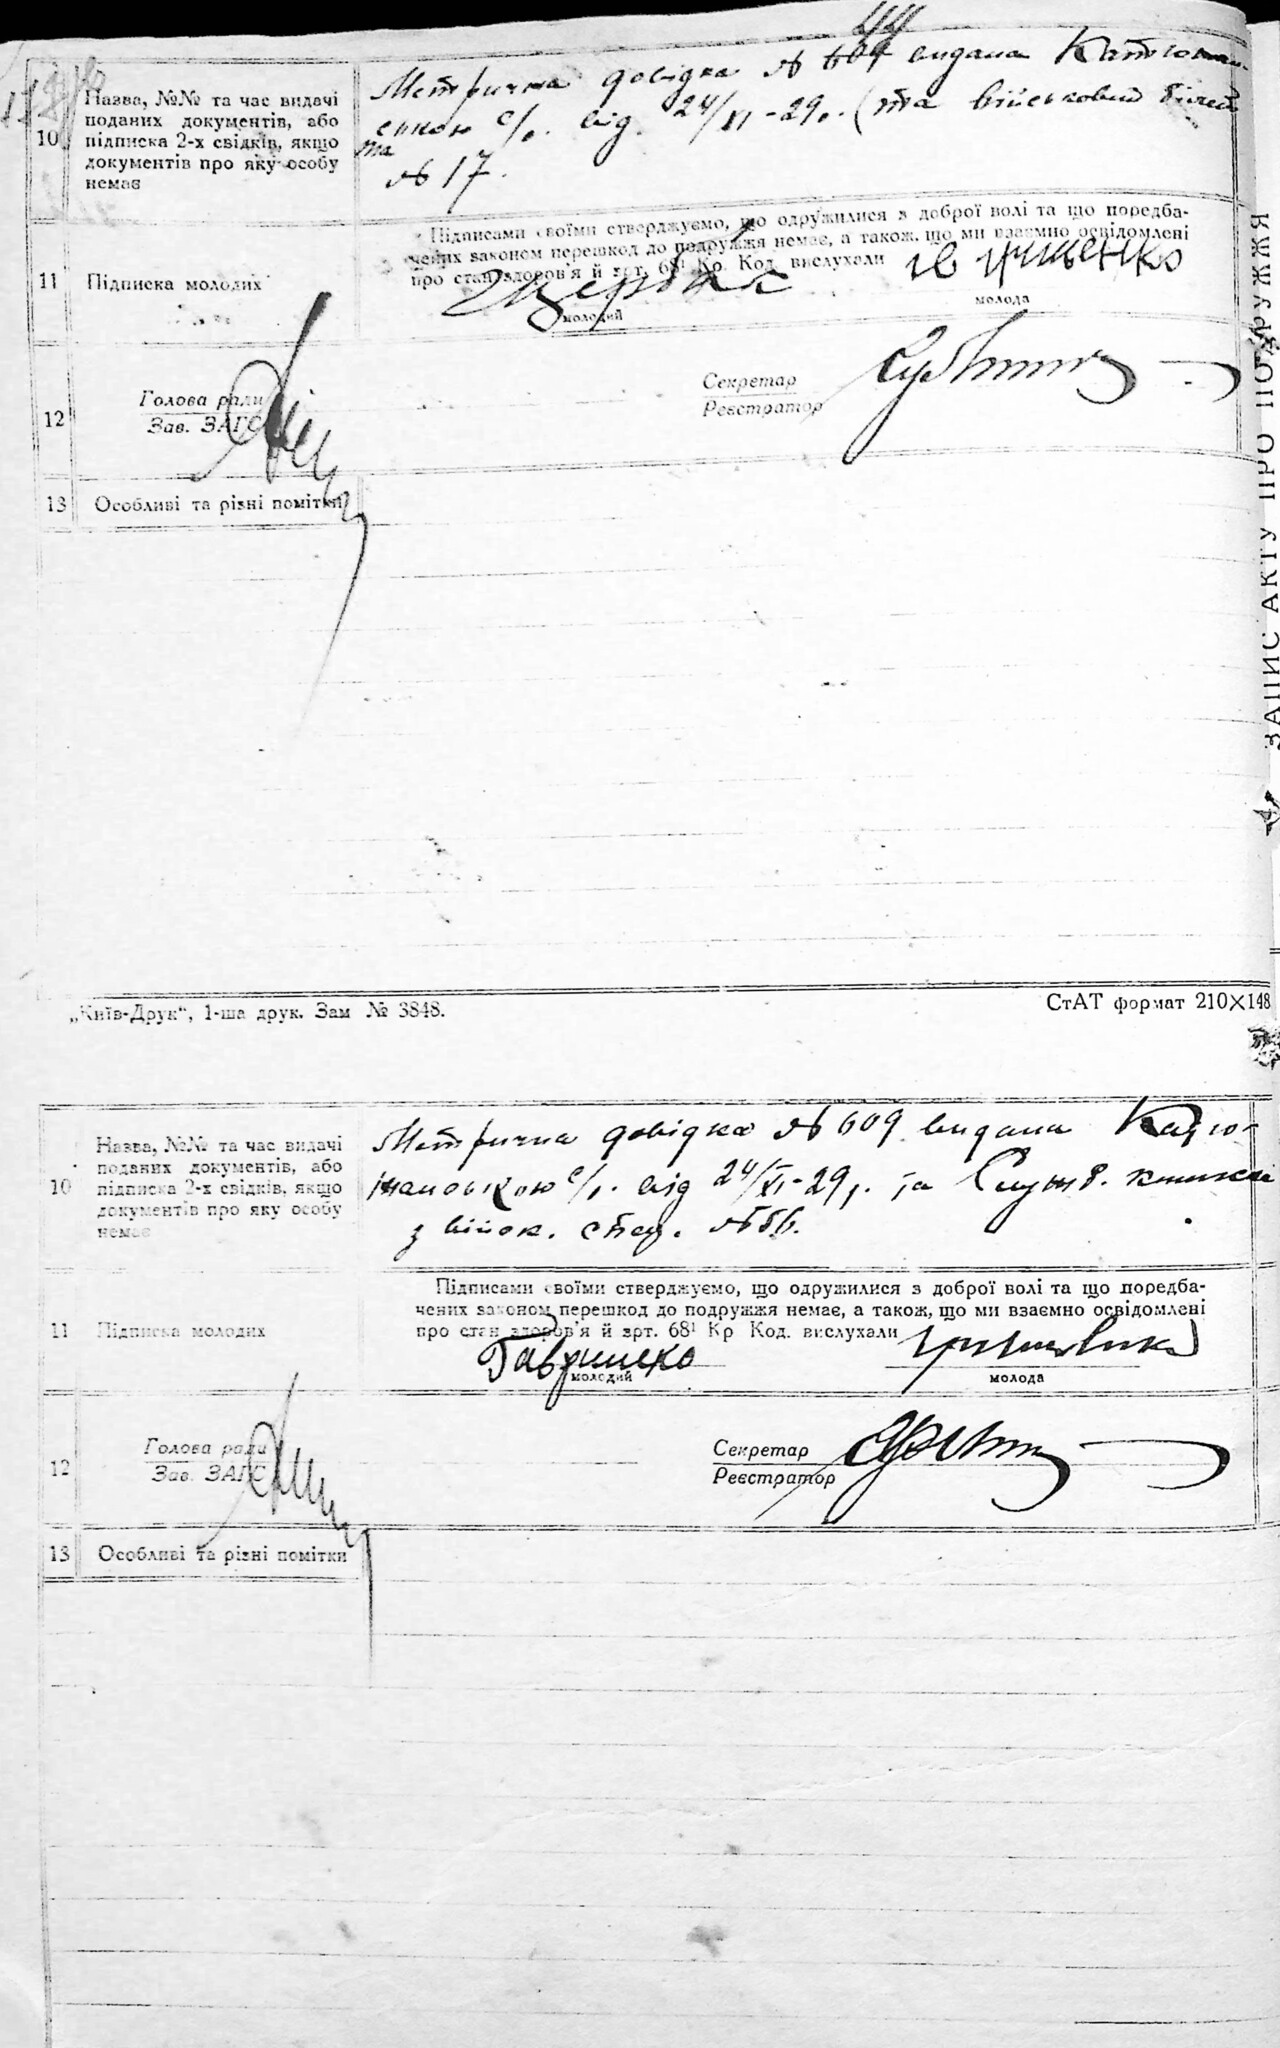 44
Метрична довідка № 604 видана
10
Назва, №№ та час видачі поданих документів, або підписка 2-х свідків, якщо документів про яку особу немає
ською с/р. від 24/XI-29р. (та військовий білет
та № 17.
11
Підписка молодих
Підписами своїми стверджуємо, що одружилися з доброї волі та що передба-
чених законом перешкод до подружжя немає, а також, що ми взаємно освідомлені
про стан здоров'я й арт. 68¹ Кр. Код. вислухали
Щербак
молодий
молода
12
Голова ради
Зав. ЗАГС
Секретар
Реєстратор
13
Особливі та різні помітки
ЗАПИС АКТУ ПРО ПОДРУЖЖЯ
„Київ-Друк“, 1-ша друк. Зам № 3848.
СтАТ формат 210×148
Метрична довідка № 609 видана
10
Назва, №№ та час видачі
поданих документів, або
підписка 2-х свідків, якщо
документів про яку особу
немає
с/р. від 24/XI-29р. та Служб. книжка
з військ. стол. №
11
Підписка молодих
Підписами своїми стверджуємо, що одружилися з доброї волі та що поредба-
чених законом перешкод до подружжя немає, а також, що ми взаємно освідомлені
про стан здоров'я й арт. 68¹ Кр Код. вислухали
молодий
молода
12
Голова ради
Зав. ЗАГС
Секретар
Реєстратор
13
Особливі та різні помітки